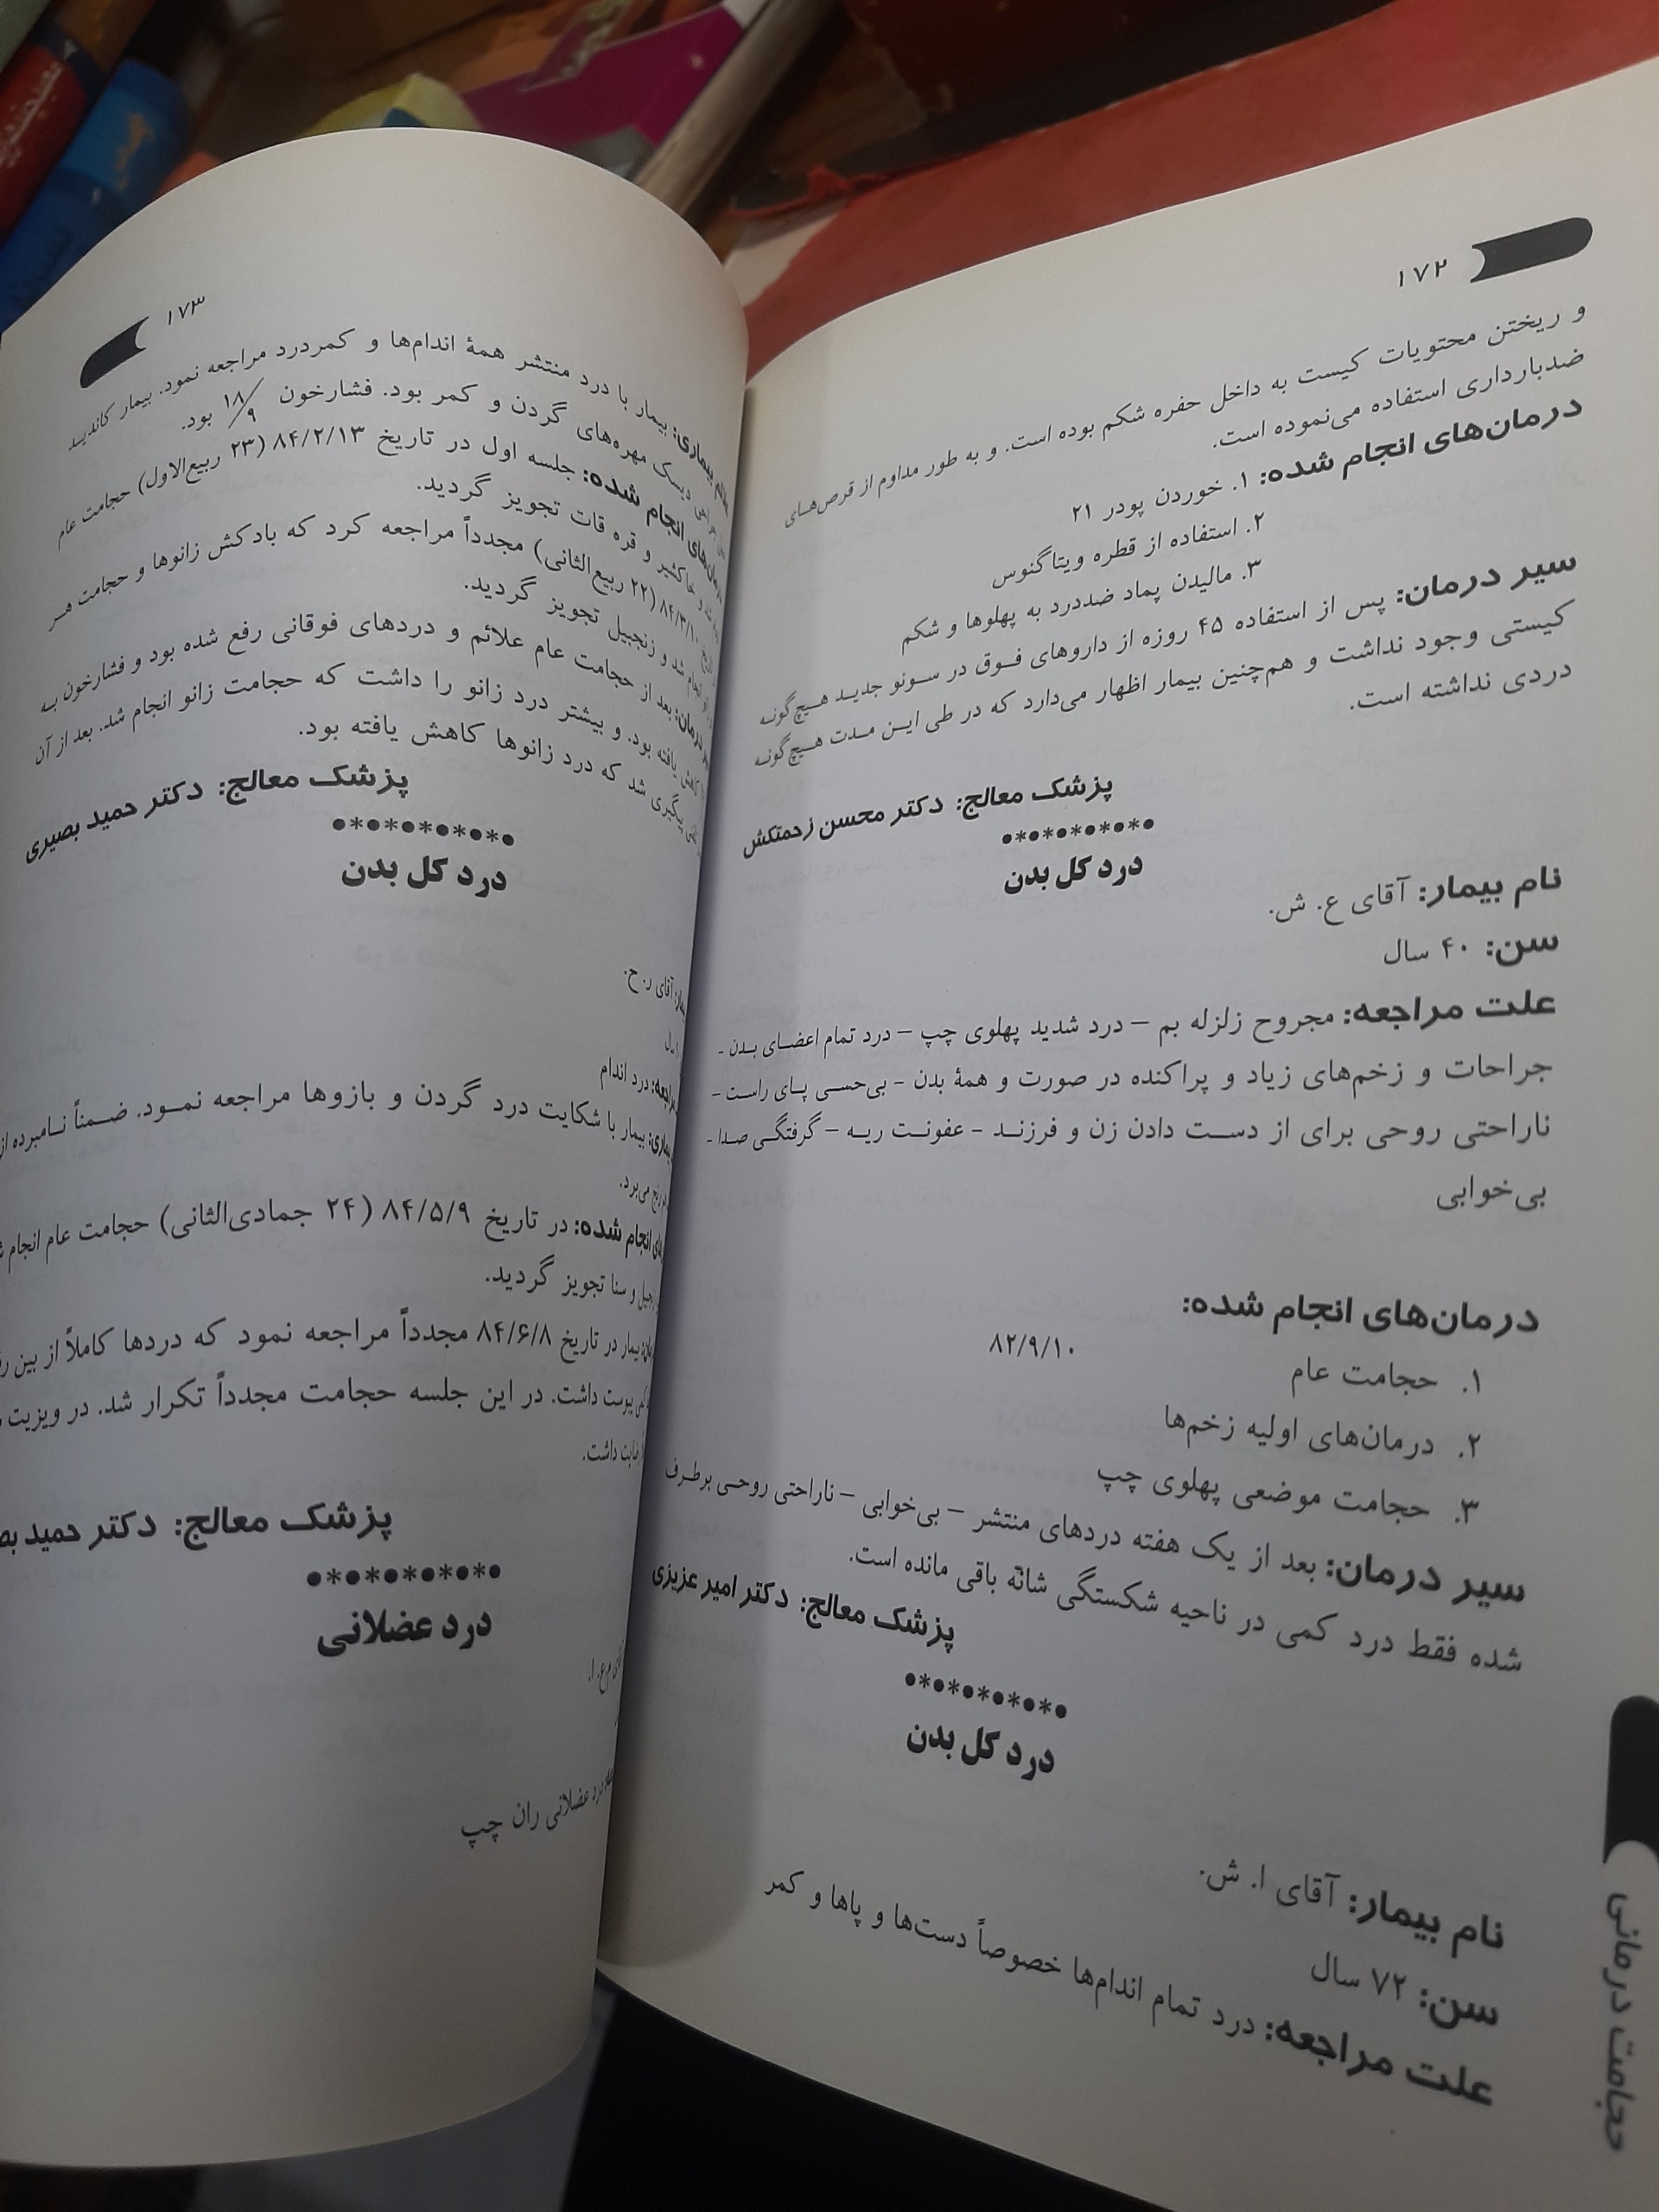 ۱۷۲
و ریختن محتویات کیست به داخل حفره شکم بوده است. و به طور مداوم از قرص‌های
ضدبارداری استفاده می‌نموده است.
درمان‌های انجام شده: ۱. خوردن پودر ۲۱
۲. استفاده از قطره ویتاگنوس
۳. مالیدن پماد ضددرد به پهلوها و شکم
سیر درمان: پس از استفاده ۴۵ روزه از داروهای فوق در سونو جدید هیچ‌گونه
کیستی وجود نداشت و هم‌چنین بیمار اظهار می‌دارد که در طی این مدت هیچ‌گونه
دردی نداشته است.
پزشک معالج: دکتر محسن زحمتکش
●*●*●*●*●*●
درد کل بدن
نام بیمار: آقای ع. ش.
سن: ۴۰ سال
علت مراجعه: مجروح زلزله بم – درد شدید پهلوی چپ – درد تمام اعضای بدن -
جراحات و زخم‌های زیاد و پراکنده در صورت و همۀ بدن - بی‌حسی پای راست -
ناراحتی روحی برای از دست دادن زن و فرزند - عفونت ریه – گرفتگی صدا -
بی‌خوابی
درمان‌های انجام شده:
۱. حجامت عام ۸۲/۹/۱۰
۲. درمان‌های اولیه زخم‌ها
۳. حجامت موضعی پهلوی چپ
سیر درمان: بعد از یک هفته دردهای منتشر – بی‌خوابی – ناراحتی روحی برطرف
شده فقط درد کمی در ناحیه شکستگی شانه باقی مانده است.
پزشک معالج: دکتر امیر عزیزی
●*●*●*●*●*●
درد کل بدن
نام بیمار: آقای ا. ش.
سن: ۷۲ سال
علت مراجعه: درد تمام اندام‌ها خصوصاً دست‌ها و پاها و کمر
حجامت درمانی
۱۷۳
بیماری: بیمار با درد منتشر همۀ اندام‌ها و کمردرد مراجعه نمود. بیمار کاندید
جراحی دیسک مهره‌های گردن و کمر بود. فشارخون ۱۸/۹ بود.
انجام شده: جلسه اول در تاریخ ۸۴/۲/۱۳ (۲۳ ربیع‌الاول) حجامت عام
خاکشیر و قره قات تجویز گردید.
۸۴/۳/۱۰ (۲۲ ربیع‌الثانی) مجدداً مراجعه کرد که بادکش زانوها و حجامت هر
انجام شد و زنجبیل تجویز گردید.
درمان: بعد از حجامت عام علائم و دردهای فوقانی رفع شده بود و فشارخون به
کاهش یافته بود. و بیشتر درد زانو را داشت که حجامت زانو انجام شد. بعد از آن
پیگیری شد که درد زانوها کاهش یافته بود.
پزشک معالج: دکتر حمید بصیری
●*●*●*●*●*●
درد کل بدن
آقای ر. ح.
سال
درد اندام
بیمار با شکایت درد گردن و بازوها مراجعه نمود. ضمناً نامبرده از
رنج می‌برد.
انجام شده: در تاریخ ۸۴/۵/۹ (۲۴ جمادی‌الثانی) حجامت عام انجام
و سنا تجویز گردید.
بیمار در تاریخ ۸۴/۶/۸ مجدداً مراجعه نمود که دردها کاملاً از بین
یبوست داشت. در این جلسه حجامت مجدداً تکرار شد. در ویزیت
رضایت داشت.
پزشک معالج: دکتر حمید
●*●*●*●*●*●
درد عضلانی
درد عضلانی ران چپ